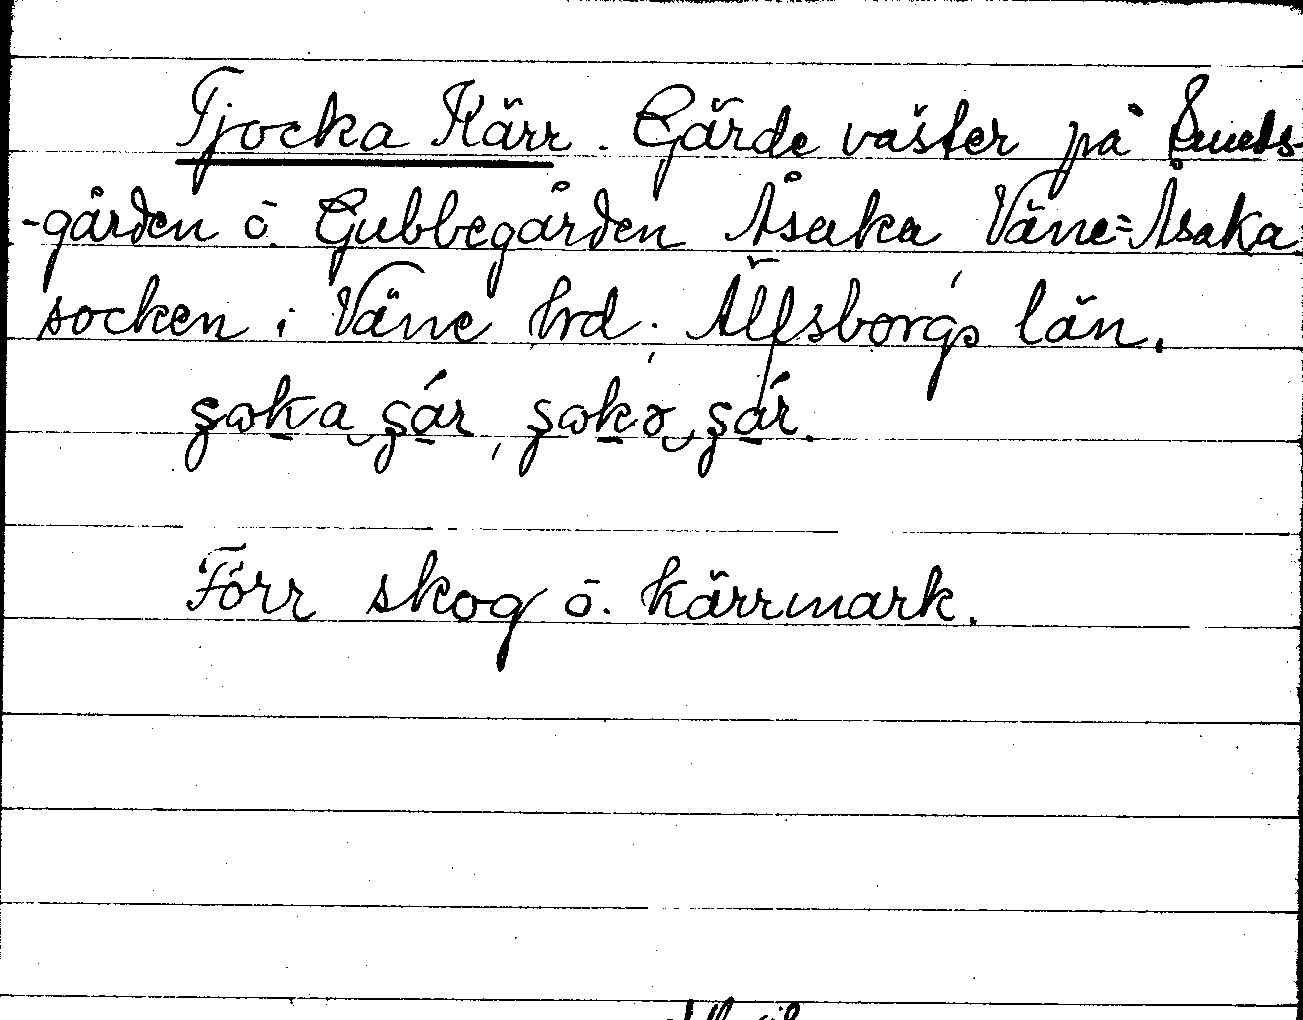 Tjocka Kärr. Gärde väster på Lunds-
-gården o. Gubbegården Åsaka Väne=Åsaka
socken i Väne hrd; Älfsborgs län.
Förr skog o. kärrmark.